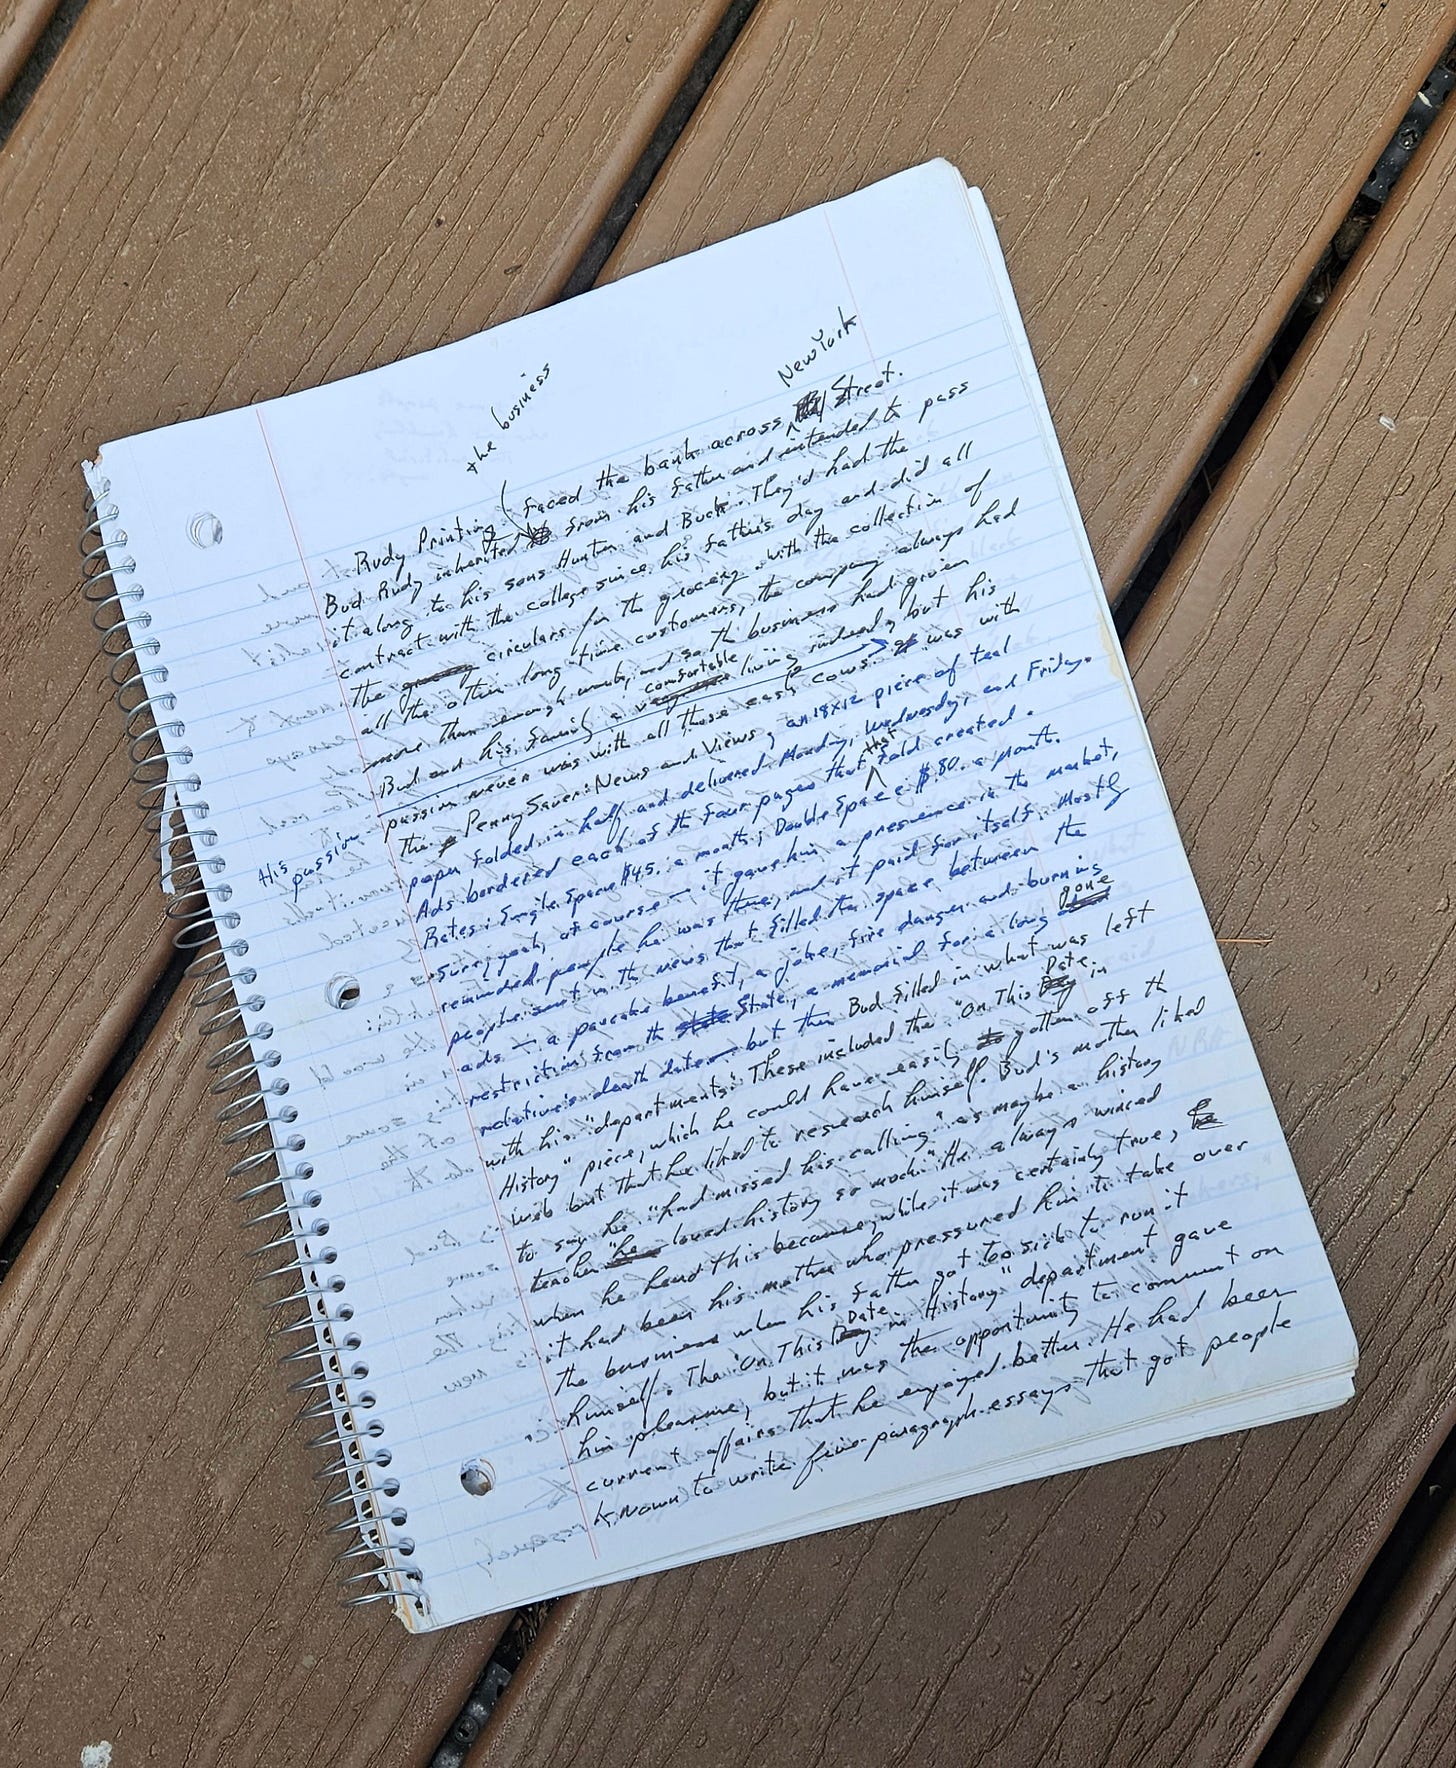 the business
New York
Rudy Printing faced the bank across Street.
Bud Rudy inherited from his father and intended to pass
it along to his sons Hunter and Buck. They'd had the
contract with the college since his father's day and did all
the circulars for the grocery with the collection of
all the other long-time customers, the company always had
more than enough work, and so the business had given
comfortable
Bud and his family a living indeed, but his
passion never was with all those cash cows. was with
His passion
the PennySaver: News and Views, an 18x12 piece of teal
paper folded in half and delivered Monday, Wednesday, and Friday.
that
Ads bordered each of the four pages that fold created.
Rates: Single Space $45. a month; Double Space: $80. a month.
Sure, yeah, of course – it gave him a presence in the market,
reminded people he was there, and it paid for itself. Mostly
people sent in the news that filled the space between the
ads – a pancake benefit, a joke, fire danger and burning
restrictions from the State, a memorial for a long
gone
relative's death date – but then Bud filled in what was left
with his "departments." These included the "On This
Date
in
History" piece, which he could have easily gotten off the
web but that he liked to research himself. Bud's mother liked
to say he "had missed his calling" as maybe a history
teacher loved history so much." He always winced
when he heard this because, while it was certainly true,
it had been his mother who pressured him to take over
the business when his father got too sick to run it
himself. The "On This
Date
in History" department gave
him pleasure, but it was the opportunity to comment on
current affairs that he enjoyed better. He had been
known to write five-paragraph essays that got people